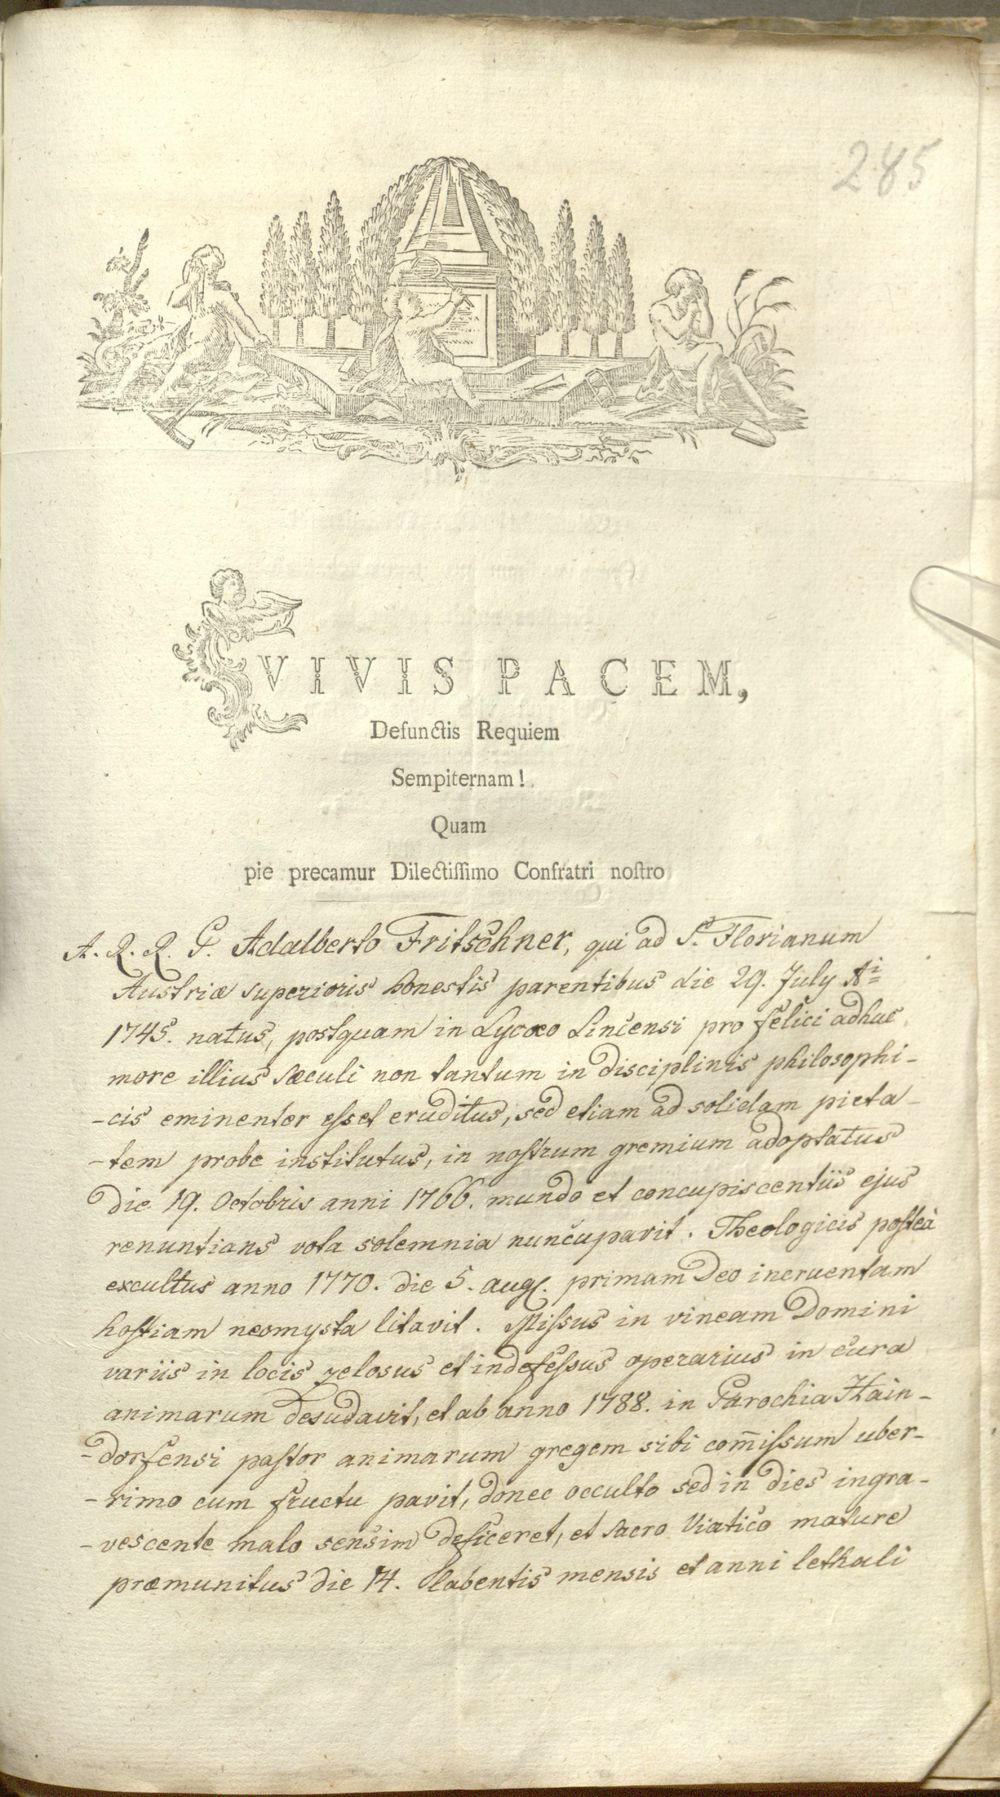 285
VIVIS PACEM,
Defunctis Requiem
Sempiternam!
Quam
pie precamur Dilectissimo Confratri nostro
A. R. R. P. Adalberto Fritschner, qui ad S. Florianum
Austriæ superioris honestis parentibus die 29. July Ai
1745. natus, postquam in Lycæo Lincensi pro felici adhuc
more illius sæculi non tantum in disciplinis philosophi-
-cis eminenter esset eruditus, sed etiam ad solidam pieta-
-tem probe institutus, in nostrum gremium adoptatus
die 19. Octobris anni 1766. mundo et concupiscentiis ejus
renuntians vota solemnia nuncupavit. Theologicis posteà
excultus anno 1770. die 5. aug. primam Deo incruentam
hostiam neomysta litavit. Missus in vineam Domini
variis in locis zelosus et indefessus operarius in cura
animarum desudavit, et ab anno 1788. in Parochia Hain-
-dorfensi pastor animarum gregem sibi com̄issum uber-
-rimo cum fructu pavit, donec occulto sed in dies ingra-
-vescente malo sensim deficeret, et sacro Viatico mature
præmunitus die 14. labentis mensis et anni lethali